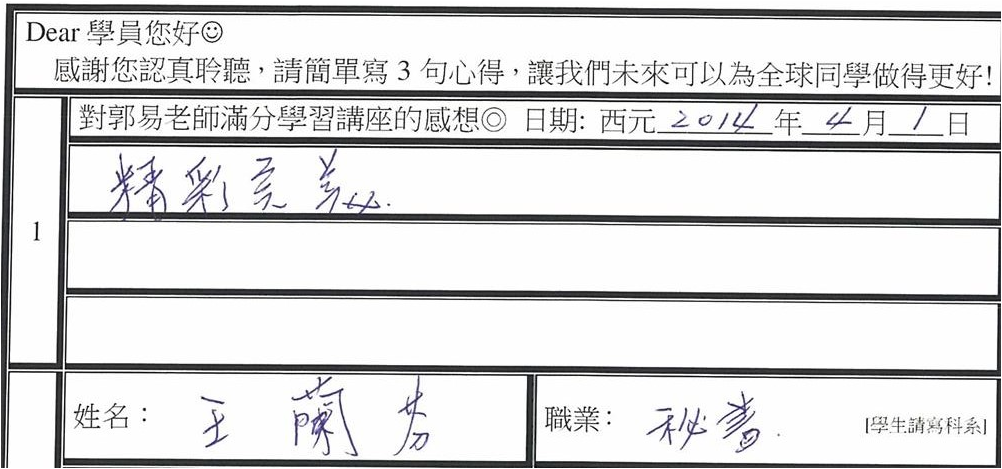 Dear 學員您好☺
感謝您認真聆聽，請簡單寫 3 句心得，讓我們未來可以為全球同學做得更好!
對郭易老師滿分學習講座的感想◎ 日期: 西元 2014 年 4 月 1 日
1
精彩完美.
姓名： 王蘭芬
職業： 秘書. [學生請寫科系]